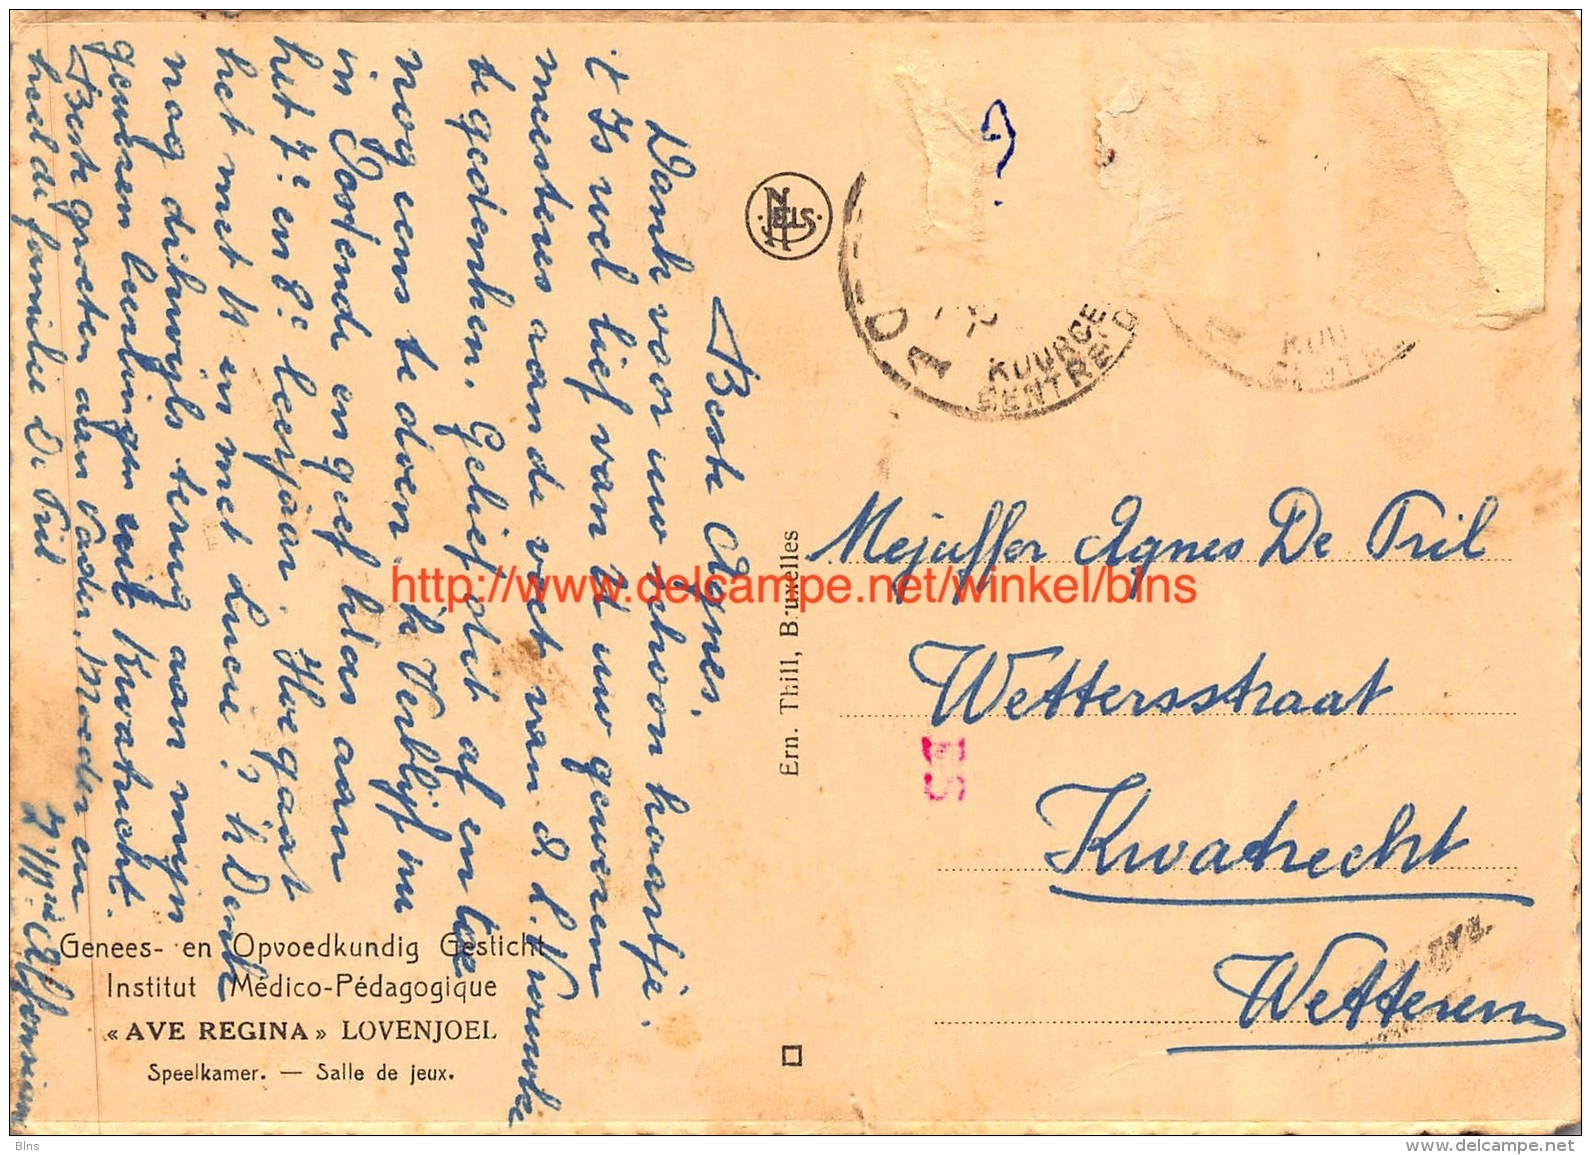 Beste Agnes,
Dank voor uw schoon kaartje.
't Is wel lief van U uw gewezen
meesteres aan de voet van O. L. Vrouwke
te gedenken. Gelief dit af en toe
nog eens te doen. 'k Verblijf nu
in Oostende en geef klas aan
het 7e en 8e leerjaar. Hoe gaat
het met U en met Lucie? 'k Denk
nog dikwijls terug aan mijn
gewezen leerlingen uit Kwatrecht.
Beste groeten aan Vader, Moeder en
heel de familie De Pril.
Genees- en Opvoedkundig Gesticht
Institut Médico-Pédagogique
« AVE REGINA » LOVENJOEL
Speelkamer. — Salle de jeux.
Ern. Thill, Bruxelles
NELS
KUURGE
SENTRE D
KUU
Mejuffer Agnes De Pril
Wettersstraat
Kwatrecht
Wetteren
http://www.delcampe.net/winkel/blns
Blns
www.delcampe.net